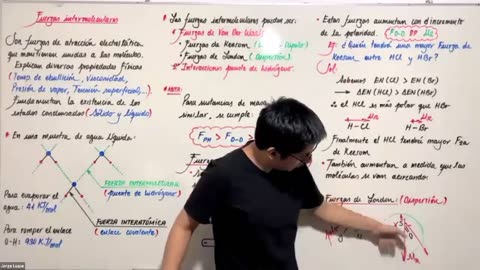 Fuerzas intermoleculares
Son fuerzas de atracción electrostática
que mantienen unidas a las moléculas.
Explican diversas propiedades físicas
(Temp de ebullición, viscosidad,
Presión de vapor, Tensión superficial...).
Fundamentan la existencia de los
estados condensados (Sólido y Líquido)
• En una muestra de agua líquida.
FUERZA INTERMOLECULAR
(puente de hidrógeno)
Para evaporar el
agua: 44 KJ/mol
FUERZA INTERATÓMICA
(enlace covalente)
Para romper el enlace
O-H: 930 KJ/mol
• Las fuerzas intermoleculares pueden ser:
Fuerzas de Van Der Waals
• Fuerzas de Keesom
• Fuerzas de London (Dispersión)
Interacciones puente de hidrógeno.
NOTA:
Para sustancias de masa
similar, se cumple:
F PH > F D-D
• Estas fuerzas aumentan con el incremento
de la polaridad.
F D-D
¿Quién tendrá una mayor fuerza de
Keesom entre HCl y HBr?
Sol:
Sabemos EN(Cl) > EN(Br)
→ ΔEN(HCl) > ΔEN(HBr)
∴ el HCl es más polar que HBr
H-Cl H-Br
Finalmente el HCl tendrá mayor Fza
de Keesom.
• También aumentan a medida que las
moléculas se van acercando.
Fuerzas de London: (Dispersión)